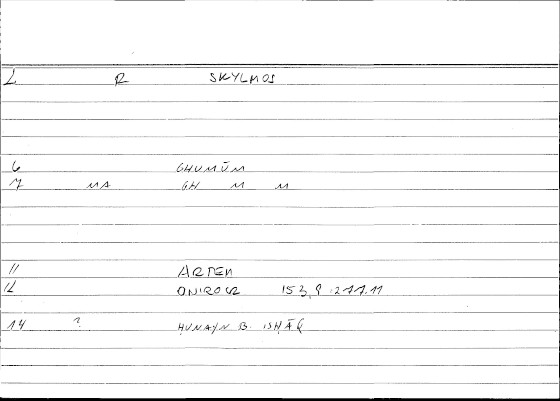 2 R SKYLMOS
6 GHUMŪM
7 MA GH M M
11 ARTEM
12 ONIROCR 153,9 :277.11
14 ? ḤUNAYN B. ISḤĀQ